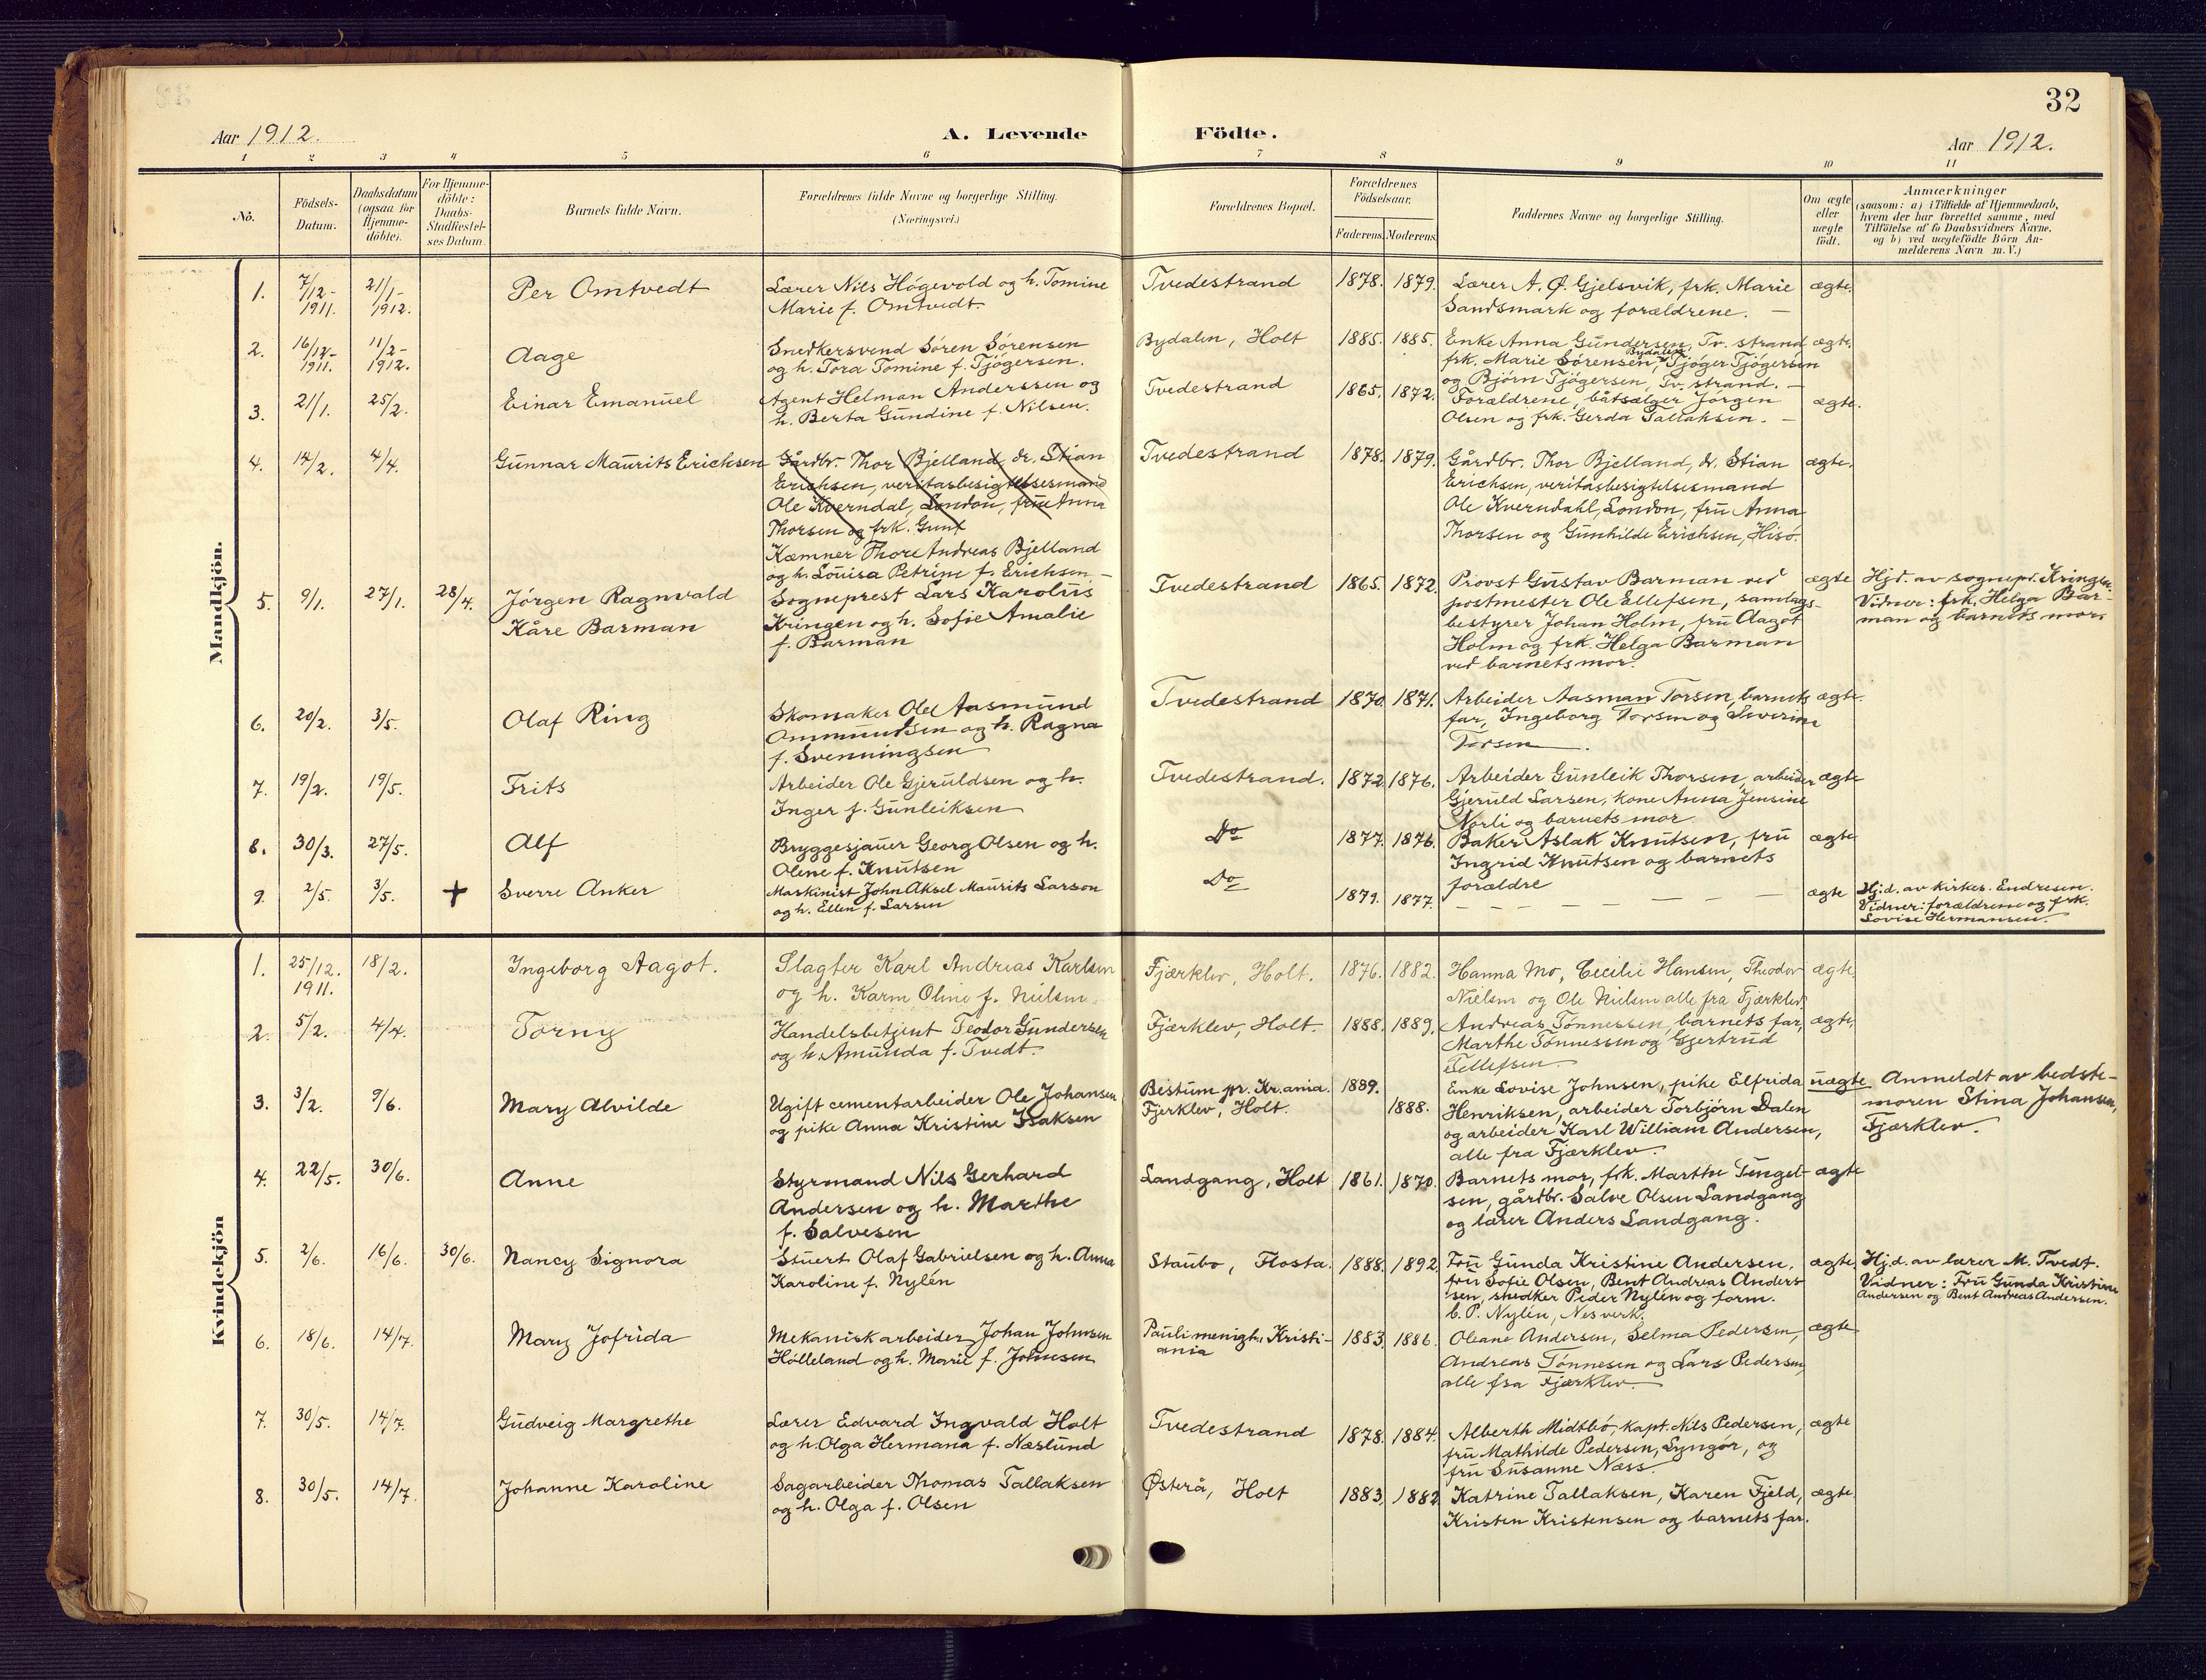 32
Aar 1912.
A. Levende Födte.
Aar 1912.
1 2 3 4 5 6 7 8 9 10 11
No.
Födsels-
Datum.
Daabsdatum
(ogsaa for
Hjemme-
döbte).
For Hjemme-
döbte:
Daabs-
Stadfæstel-
ses Datum.
Barnets fulde Navn.
Forældrenes fulde Navne og borgerlige Stilling.
(Næringsvei.)
Forældrenes Bopæl.
Forældrenes
Födselsaar.
Faderens. Moderens.
Faddernes Navne og borgerlige Stilling.
Om ægte
eller
uægte
födt.
Anmærkninger
(saasom: a) i Tilfælde af Hjemmedaab,
hvem der har forrettet samme, med
Tilföielse af to Daabsvidners Navne,
og b) ved uægtefödte Börn An-
melderens Navn m. V.)
Mandkjön.
1. 7/12- 1911. 21/1- 1912. Per Omtvedt
Lærer Nils Högevold og h. Tomine
Marie f. Omtvedt.
Tvedestrand 1878. 1879.
Lærer A. Ø. Gjelsvik, frk. Marie
Sandsmark og forældrene. –
ægte.
2. 16/12- 1911. 11/2- 1912. Aage
Snedkersvend Sören Sörensen
og h. Tora Tomine f. Tjögersen.
Bydalen, Holt 1885. 1885.
Enke Anna Gundersen, Tv. strand
frk. Marie Sörensen, Bydalen, Tjöger Tjögersen
og Björn Tjögersen, Tv. strand. –
ægte.
3. 21/1. 25/2. Einar Emanuel
Agent Helman Anderssen og
h. Berta Gundine f. Nilsen.
Tvedestrand 1865. 1872.
Forældrene, båtsælger Jörgen
Olsen og frk. Gerda Tallaksen. –
ægte.
4. 14/2. 4/4. Gunnar Maurits Erichsen
Gårdbr. Thor Bjelland, dr. Stian
Erichsen, veritasbesigtelsesmand
Ole Kverndal, London, frue Anna
Thorsen og frk. Gunf
Kæmner Thore Andreas Bjelland
og h. Louisa Petrine f. Erichsen –
Tvedestrand 1878. 1879.
Gårdbr. Thor Bjelland, dr. Stian
Erichsen, veritasbesigtelsesmand
Ole Kverndahl, London, fru Anna
Thorsen og Gunhilde Erichsen, Hisö.
ægte.
5. 9/1. 27/1. 28/4. Jörgen Ragnvald
Kåre Barman
Sogneprest Lars Karolius
Kringen og h. Sofie Amalie
f. Barman
Tvedestrand 1865. 1872.
Provst Gustav Barman ved
postmester Ole Ellefsen, samlags-
bestyrer Johan Holm, fru Aagot
Holm og frk. Helga Barman
ved barnets mor.
ægte
Hjd. av sognepr. Kringen.
Vidner: frk. Helga Bar-
man og barnets mor.
6. 20/2. 3/5. Olaf Ring
Skomaker Ole Aasmund
Ommundsen og h. Ragna
f. Svenningsen
Tvedestrand 1870. 1871.
Arbeider Aasman Torsen, barnets
far, Ingeborg Torsen og Severine
Torsen.
ægte.
7. 19/2. 19/5. Frits
Arbeider Ole Gjeruldsen og h.
Inger f. Gunleiksen
Tvedestrand. 1872. 1876.
Arbeider Gunleik Thorsen, arbeider
Gjeruld Larsen, kone Anna Jensine
Norli og barnets mor.
ægte
8. 30/3. 27/5. Alf
Bryggesjauer Georg Olsen og h.
Olene f. Knutsen
Do 1877. 1876.
Baker Aslak Knutsen, fru
Ingrid Knutsen og barnets
forældre
ægte
9. 2/5. 3/5. + Sverre Anker
Maskinist John Aksel Maurits Larson
og h. Ellen f. Larsen
Do 1879. 1877.
– – – – – – –
ægte
Hj.d. av kirkes. Endresen.
Vidner: forældrene og frk.
Lovise Hermansen.
Kvindekjön
1. 25/12. 1911. 18/2. Ingeborg Aagot.
Slagter Karl Andreas Karlsen
og h. Karen Oline f. Nielsen.
Fjærklev, Holt. 1876. 1882.
Hanna Mo, Cecilie Hansen, Theodor
Nielsen og Ole Nielsen alle fra Fjærklev.
ægte.
2. 5/2. 4/4. Torny
Handelsbetjent Teodor Gundersen
og h. Amunda f. Tvedt.
Fjærklev, Holt 1888. 1889.
Andreas Tönnessen, barnets far,
Marthe Tönnessen og Gjertrud
Tellefsen.
ægte,
3. 3/2. 9/6. Mary Alvilde
Ugift cementarbeider Ole Johansen
og pike Anna Kristine Isaksen
Bestum pr. Kr.ania.
Fjerklev, Holt.
1889. 1888.
Enke Lovise Johnsen, pike Elfrida
Henriksen, arbeider Torbjörn Dalen
og arbeider Karl William Andersen,
alle fra Fjærklev.
uægte
Anmeldt av bedste-
moren Stina Johansen,
Fjærklev.
4. 22/5. 30/6. Anne
Styrmand Nils Gerhard
Andersen og h. Marthe
f. Salvesen
Landgang, Holt 1861. 1870.
Barnets mor, frk. Marthe Tengel-
sen, gårdbr. Salve Olsen Landgang
og lærer Anders Landgang.
ægte
5. 2/6. 16/6. 30/6. Nancy Signora
Stuert Olaf Gabrielsen og h. Anna
Karoline f. Nylén
Staubo, Flosta. 1888. 1892.
Fru Gunda Kristine Andersen,
fru Sofie Olsen, Bent Andreas Anders
sen, snedker Peder Nylén og form.
C. P. Nylén, Nes verk.
ægte.
Hj.d. av lærer M. Tvedt.
Vidner: Fru Gunda Kristine
Andersen og Bent Andreas Andersen.
6. 18/6. 14/7. Mary Jofrida
Mekanisk arbeider Johan Johnsen
Hölleland og h. Marie f. Johnsen
Pauli menigh. Kristi-
ania
1883. 1886.
Oleane Andersen, Selma Pedersen,
Andreas Tönnesen og Lars Pedersen,
alle fra Fjærklev.
ægte
7. 30/5. 14/7. Gudveig Margrethe
Lærer Edvard Ingvald Holt
og h. Olga Hermana f. Næslund
Tvedestrand 1878. 1884.
Alberth Midtbö, kapt. Nils Pedersen,
fru Mathilde Pedersen, Lyngör, og
fru Susanne Næss.
ægte
8. 30/5. 14/7. Johanne Karoline
Sagarbeider Thomas Tallaksen
og h. Olga f. Olsen
Østerå, Holt 1883. 1882.
Katrine Tallaksen, Karen Fjeld,
Kristen Kristensen og barnets far.
ægte.